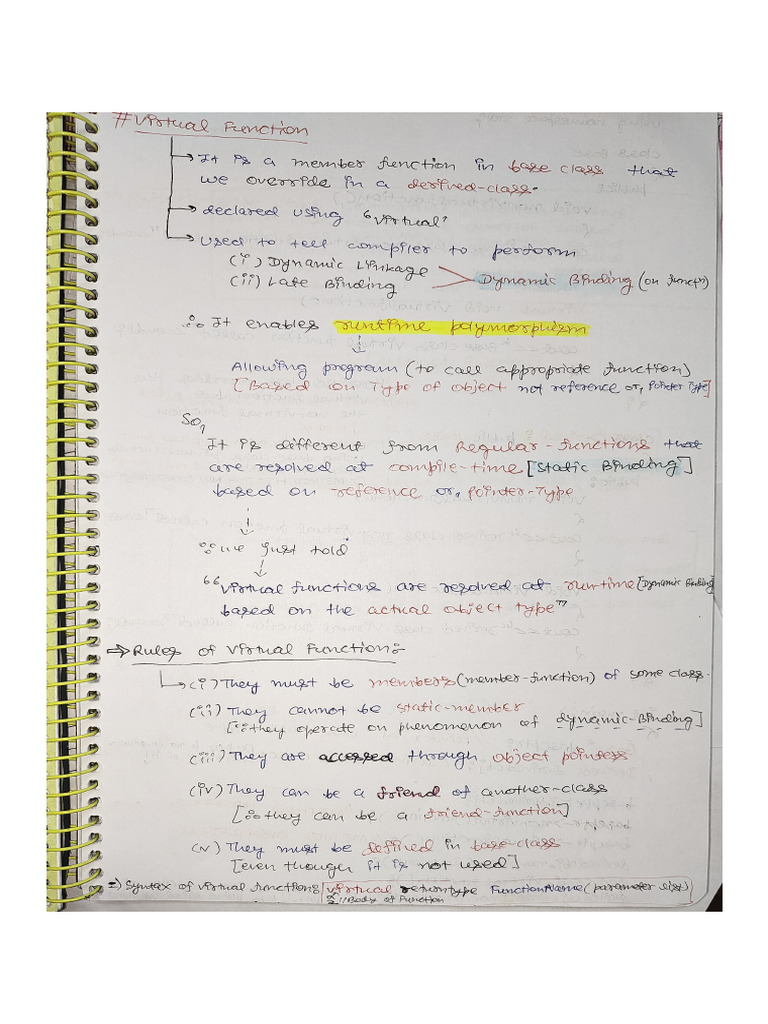 # Virtual Function
→ It is a member function in base class that
we override in a derived-class.
→ declared using "Virtual"
→ Used to tell compiler to perform
(i) Dynamic Linkage
(ii) Late Binding
Dynamic Binding (on functn)
∴ It enables runtime polymorphism
↓
Allowing program (to call appropriate function)
[Based on Type of object not reference or, Pointer Type]
So,
It is different from Regular-functions that
are resolved at compile-time [Static Binding]
based on reference or, Pointer-Type
↓
∴ we just told
↓
"Virtual functions are resolved at runtime [Dynamic Binding]
based on the actual object type"
⇒ Rules of Virtual Function:-
→ (i) They must be members (member-function) of some class.
(ii) They cannot be static-member
[∵ they operate on phenomenon of dynamic-Binding]
(iii) They are accessed through object pointers
(iv) They can be a friend of another-class
[∵ they can be a friend-function]
(v) They must be defined in base-class
[even though it is not used]
⇒) Syntax of virtual functions virtual returntype FunctionName (parameter list)
{ // Body of Function